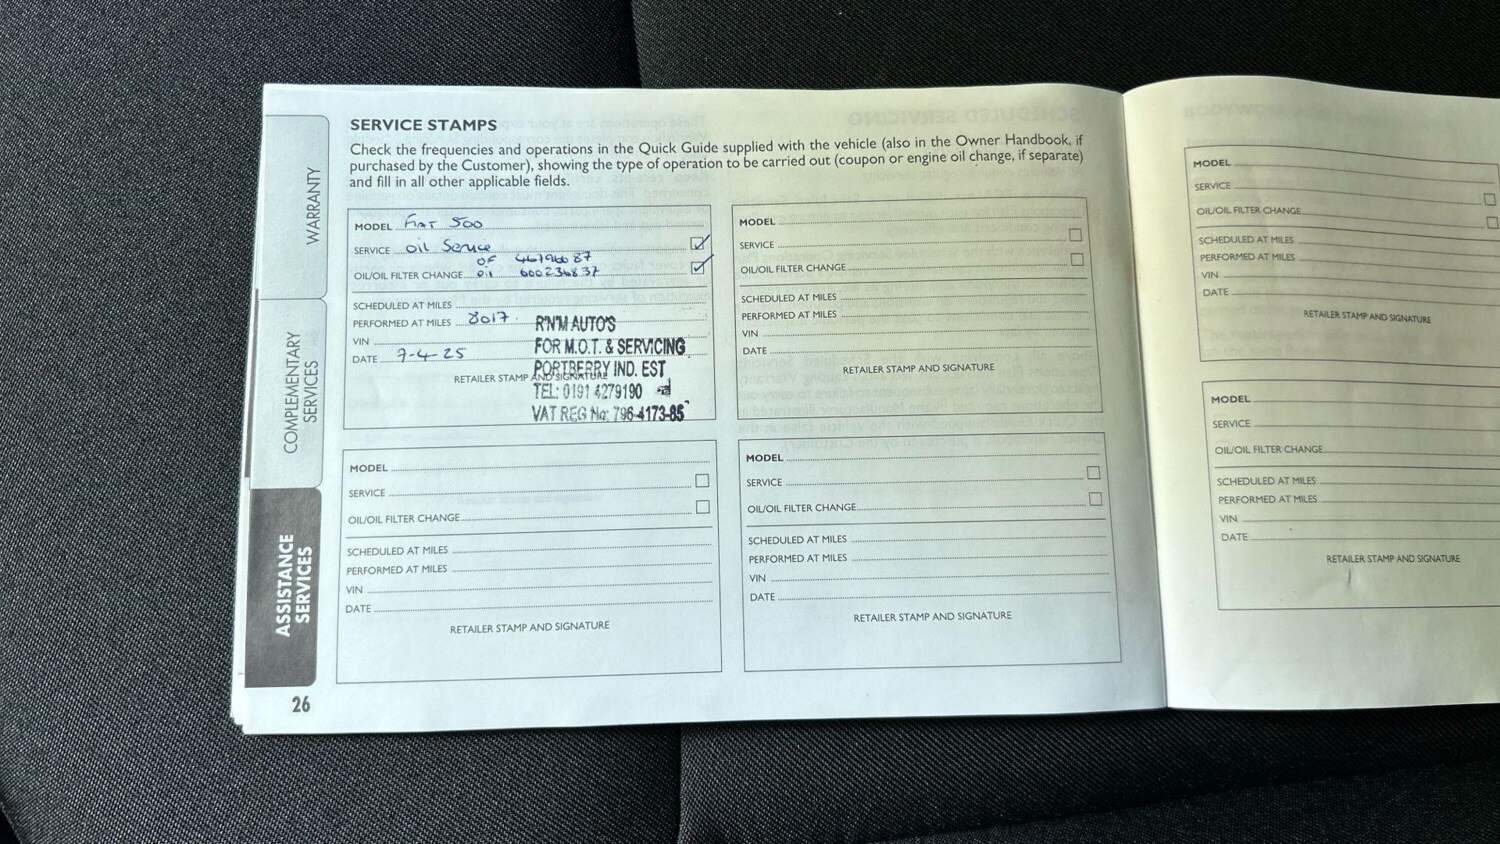 SERVICE STAMPS
Check the frequencies and operations in the Quick Guide supplied with the vehicle (also in the Owner Handbook, if
purchased by the Customer), showing the type of operation to be carried out (coupon or engine oil change, if separate)
and fill in all other applicable fields.
WARRANTY
COMPLEMENTARY
SERVICES
ASSISTANCE
SERVICES
MODEL Fiat 500
SERVICE oil Service
OF 46796687
OIL/OIL FILTER CHANGE oil
SCHEDULED AT MILES
PERFORMED AT MILES 8017
VIN
DATE 7-4-25
RETAILER STAMP AND SIGNATURE
R'N'M AUTO'S
FOR M.O.T. & SERVICING
PORTBERRY IND. EST
TEL: 0191 4279190
VAT REG No: 796-4173-85
MODEL
SERVICE
OIL/OIL FILTER CHANGE
SCHEDULED AT MILES
PERFORMED AT MILES
VIN
DATE
RETAILER STAMP AND SIGNATURE
MODEL
SERVICE
OIL/OIL FILTER CHANGE
SCHEDULED AT MILES
PERFORMED AT MILES
VIN
DATE
RETAILER STAMP AND SIGNATURE
MODEL
SERVICE
OIL/OIL FILTER CHANGE
SCHEDULED AT MILES
PERFORMED AT MILES
VIN
DATE
RETAILER STAMP AND SIGNATURE
26
MODEL
SERVICE
OIL/OIL FILTER CHANGE
SCHEDULED AT MILES
PERFORMED AT MILES
VIN
DATE
RETAILER STAMP AND SIGNATURE
MODEL
SERVICE
OIL/OIL FILTER CHANGE
SCHEDULED AT MILES
PERFORMED AT MILES
VIN
DATE
RETAILER STAMP AND SIGNATURE